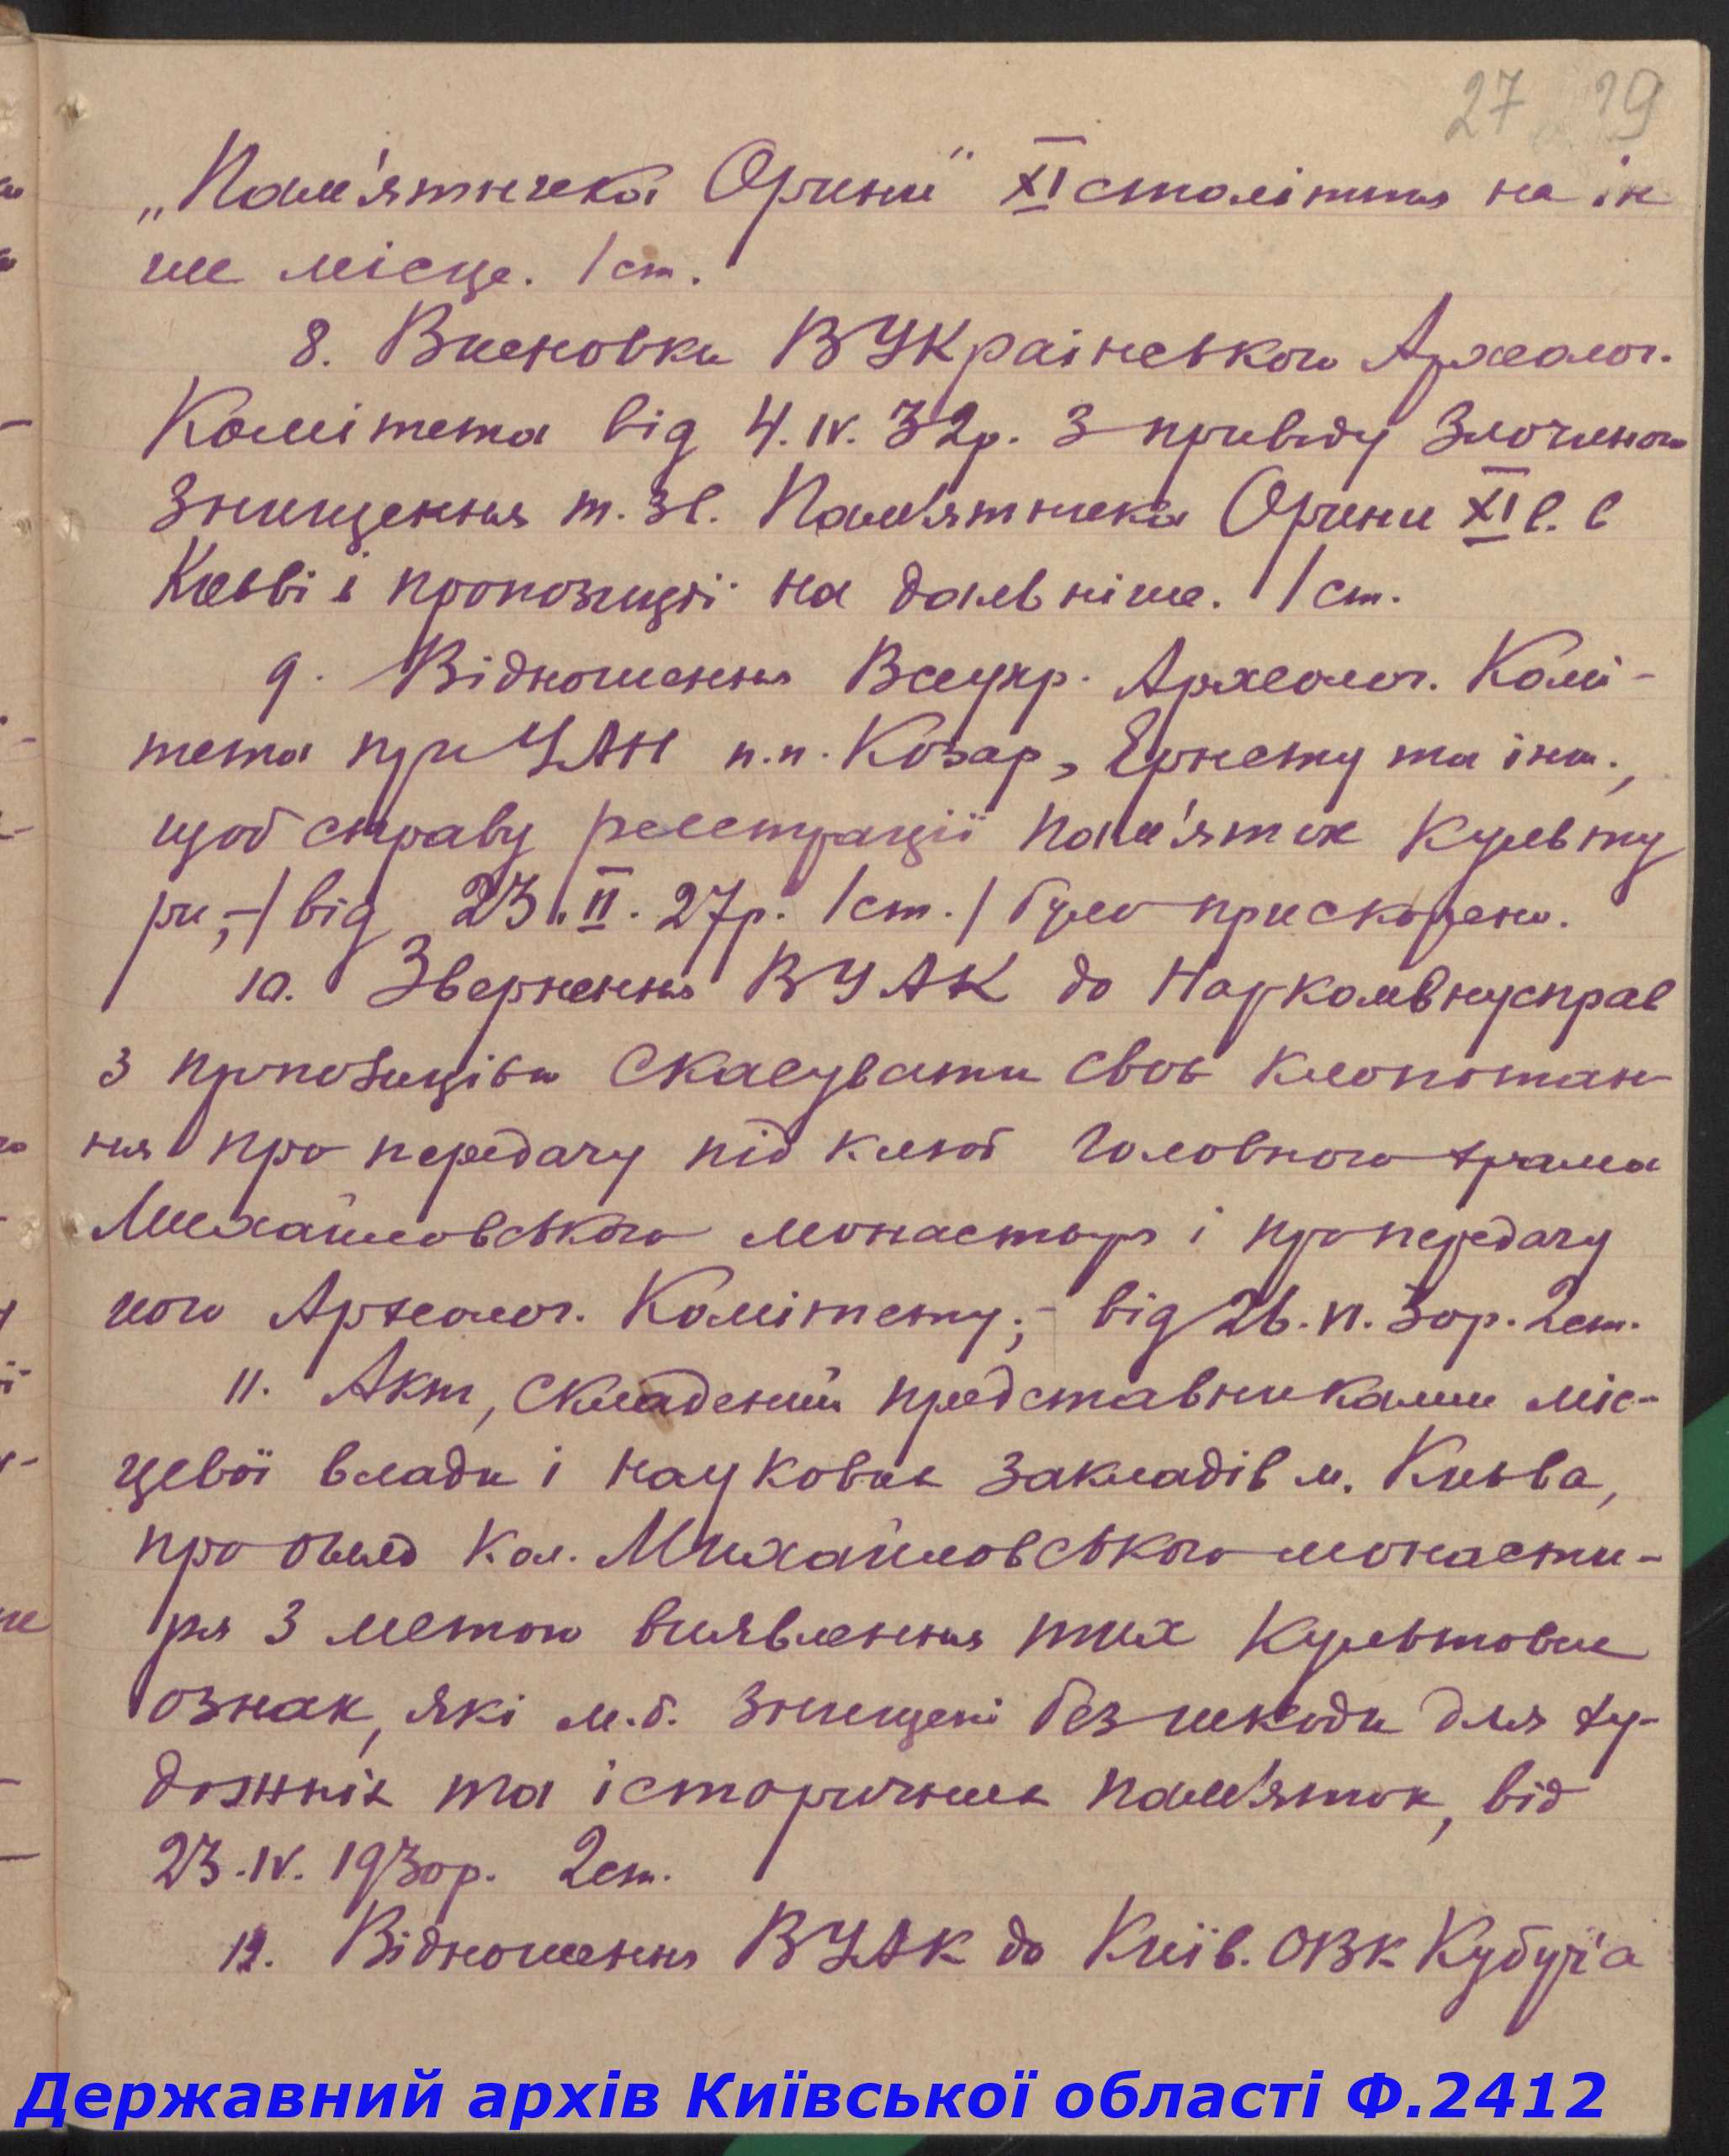 27 29
„Пам'ятника Орини" XI століття на ін
ше місце. 1 ст.
8. Висновки ВУКраїнського Археолог.
Комітета від 4.IV.32р. з приводу злочиного
знищення т. зв. Пам'ятника Орини XI в. в
Києві і пропозиції на дальніше. 1 ст.
9. Відношення Всеукр. Археолог. Комі-
тета при УАН п.п. Козар, Ернсту та інш.,
щоб справу реєстрації пам'яток культу
ри,-/ від 23.II.27р. 1 ст./ було прискорено.
10. Звернення ВУАК до Наркомвнусправ
з пропозицією скасувати своє клопотан-
ня про передачу під клюб головного храма
Михайловського монастиря і про передачу
його Археолог. Комітету;- від 26.II.30р. 2 ст.
11. Акт, складений представниками міс-
цевої влади і наукових закладів м. Києва,
про огляд кол. Михайловського монасти-
ря з метою виявлення тих культових
ознак, які м.б. знищені без шкоди для ху-
дожніх та історичних пам'яток, від
23.IV.1930р. 2 ст.
12. Відношення ВУАК до Київ. ОВК
Державний архів Київської області Ф.2412